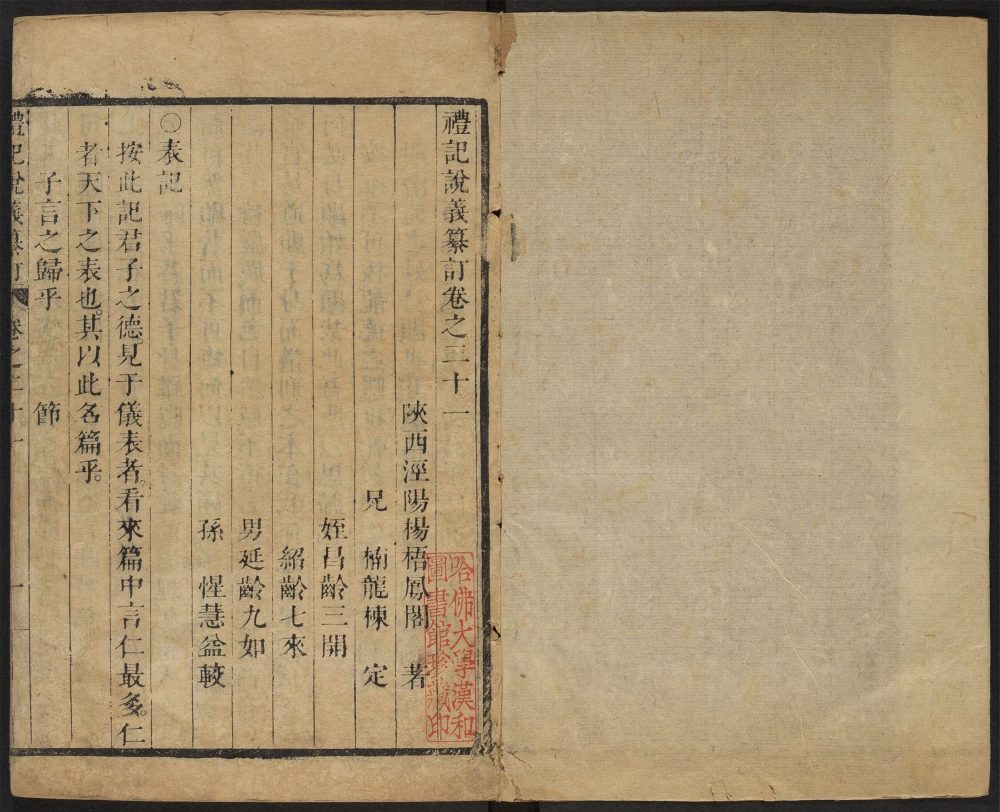 禮記說義纂訂卷之二十一
陝西涇陽楊梧鳳閣 著
兄 楠龍棟 定
姪昌齡三開
紹齡七來
男延齡九如
孫 惺慧益較
○表記
按此記君子之德見于儀表者看來篇中言仁最多仁
者天下之表也其以此名篇乎
子言之歸乎 節
禮記說義纂訂 卷之二十一 一
哈佛大學漢和
圖書館珍藏印